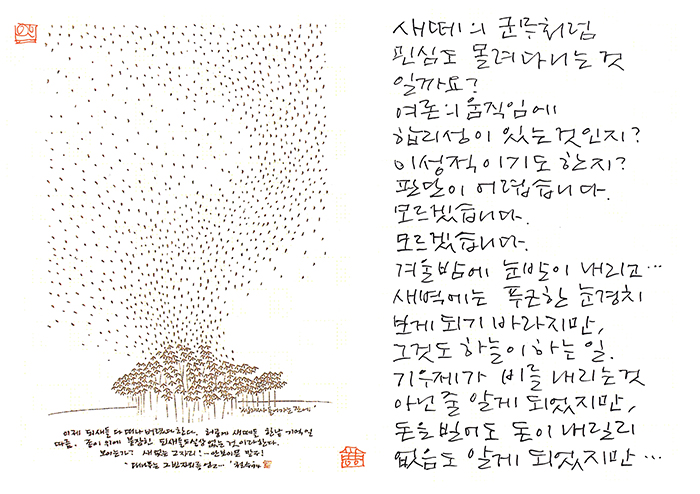 이제 되새들 다 떠나 버렸다 한다. 허공에 새떼들 한낱 기억일
따름. 종이 위에 불잡힌 되새들도 실상 없는 것이라 한다.
보이는가? 새 없는 그 자리! - 안 보이면 말자!
새떼의 군무처럼
민심도 몰려다니는 것
일까요?
여론의 움직임에
합리성이 있는 것인지?
이성적이기도 한지?
판단이 어렵습니다.
모르겠습니다.
모르겠습니다.
겨울밤에 눈발이 내리고…
새벽에는 푸근한 눈경치
보게 되기 바라지만,
그것도 하늘이 하는 일.
기우제가 비를 내리는 것
아닌 줄 알게 되었지만,
돈을 빌어도 돈이 내릴리
없음도 알게 되었지만…